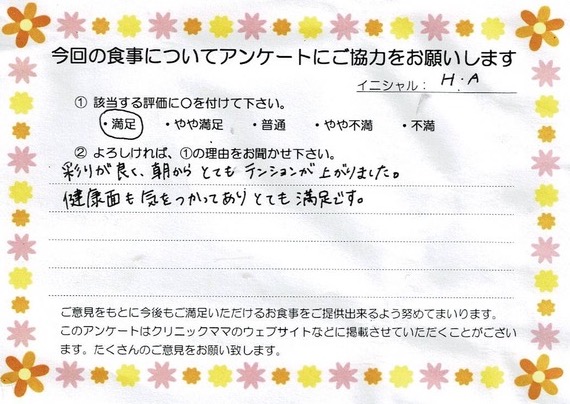 今回の食事についてアンケートにご協力をお願いします
イニシャル： H.A
① 該当する評価に○を付けて下さい。
・満足 ・やや満足 ・普通 ・やや不満 ・不満
② よろしければ、①の理由をお聞かせ下さい。
彩りが良く、朝から とても テンションが 上がりました。
健康面も 気をつかってあり とても 満足です。
ご意見をもとに今後もご満足いただけるお食事をご提供出来るよう努めてまいります。
このアンケートはクリニックママのウェブサイトなどに掲載させていただくことがござい
ます。たくさんのご意見をお願い致します。